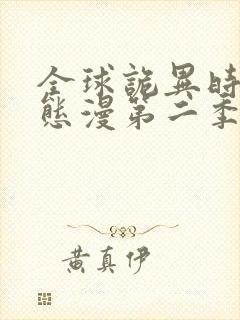 全球詭異時
態漫第二季
黃真伊